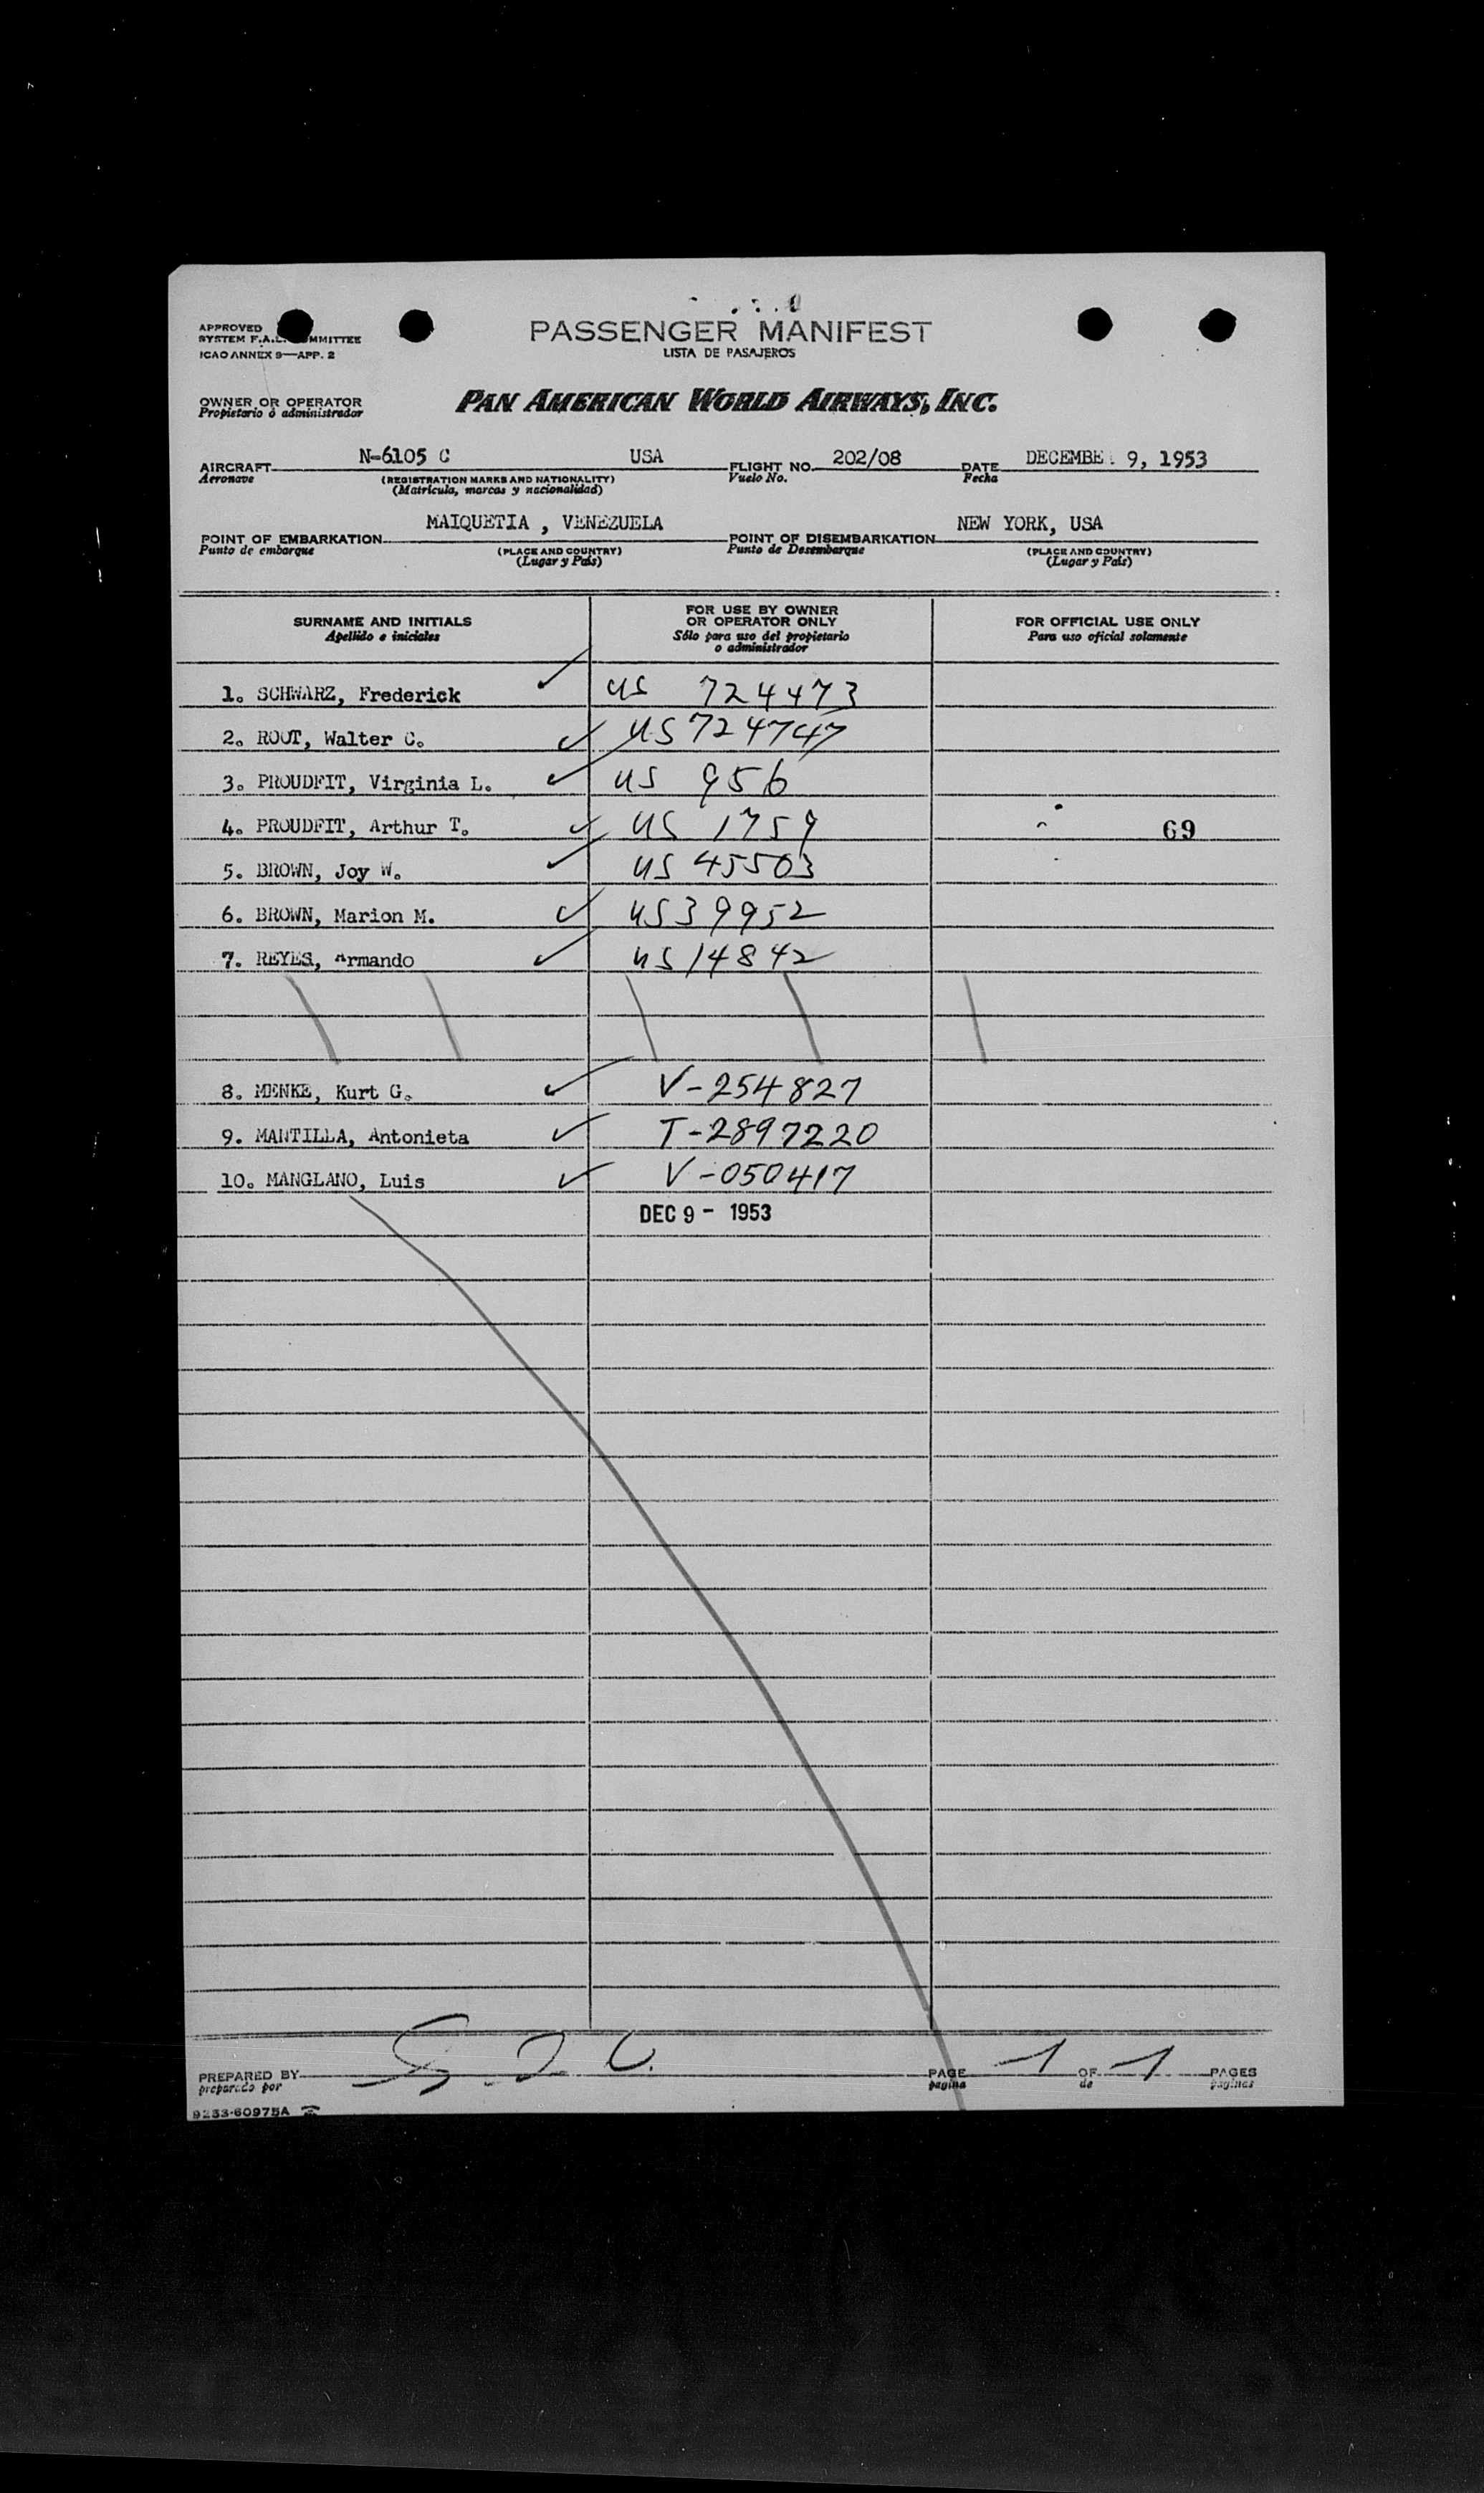 PASSENGER MANIFEST
LISTA DE PASAJEROS
APPROVED
SYSTEM F.A.L. MMITTEE
ICAO ANNEX 9—APP. 2
OWNER OR OPERATOR
Propietario ó administrador
PAN AMERICAN WORLD AIRWAYS, INC.
AIRCRAFT N-6105 C USA FLIGHT NO. 202/08 DATE DECEMBE 9, 1953
Aeronave (REGISTRATION MARKS AND NATIONALITY) Vuelo No. Fecha
(Matrícula, marcas y nacionalidad)
POINT OF EMBARKATION MAIQUETIA , VENEZUELA POINT OF DISEMBARKATION NEW YORK, USA
Punto de embarque (PLACE AND COUNTRY) Punto de Desembarque (PLACE AND COUNTRY)
(Lugar y País) (Lugar y País)
SURNAME AND INITIALS
Apellido e iniciales
FOR USE BY OWNER
OR OPERATOR ONLY
Sólo para uso del propietario
o administrador
FOR OFFICIAL USE ONLY
Para uso oficial solamente
1. SCHWARZ, Frederick US 724473
2. ROOT, Walter C. US 724747
3. PROUDFIT, Virginia L. US 956
4. PROUDFIT, Arthur T. US 1759 69
5. BROWN, Joy W. US 45503
6. BROWN, Marion M. US 39952
7. REYES, Armando US 14842
8. MENKE, Kurt G. V-254827
9. MANTILLA, Antonieta T-2897220
10. MANGLANO, Luis V-050417
DEC 9 - 1953
PREPARED BY PAGE 1 OF 1 PAGES
preparado por página de páginas
9233-60975A